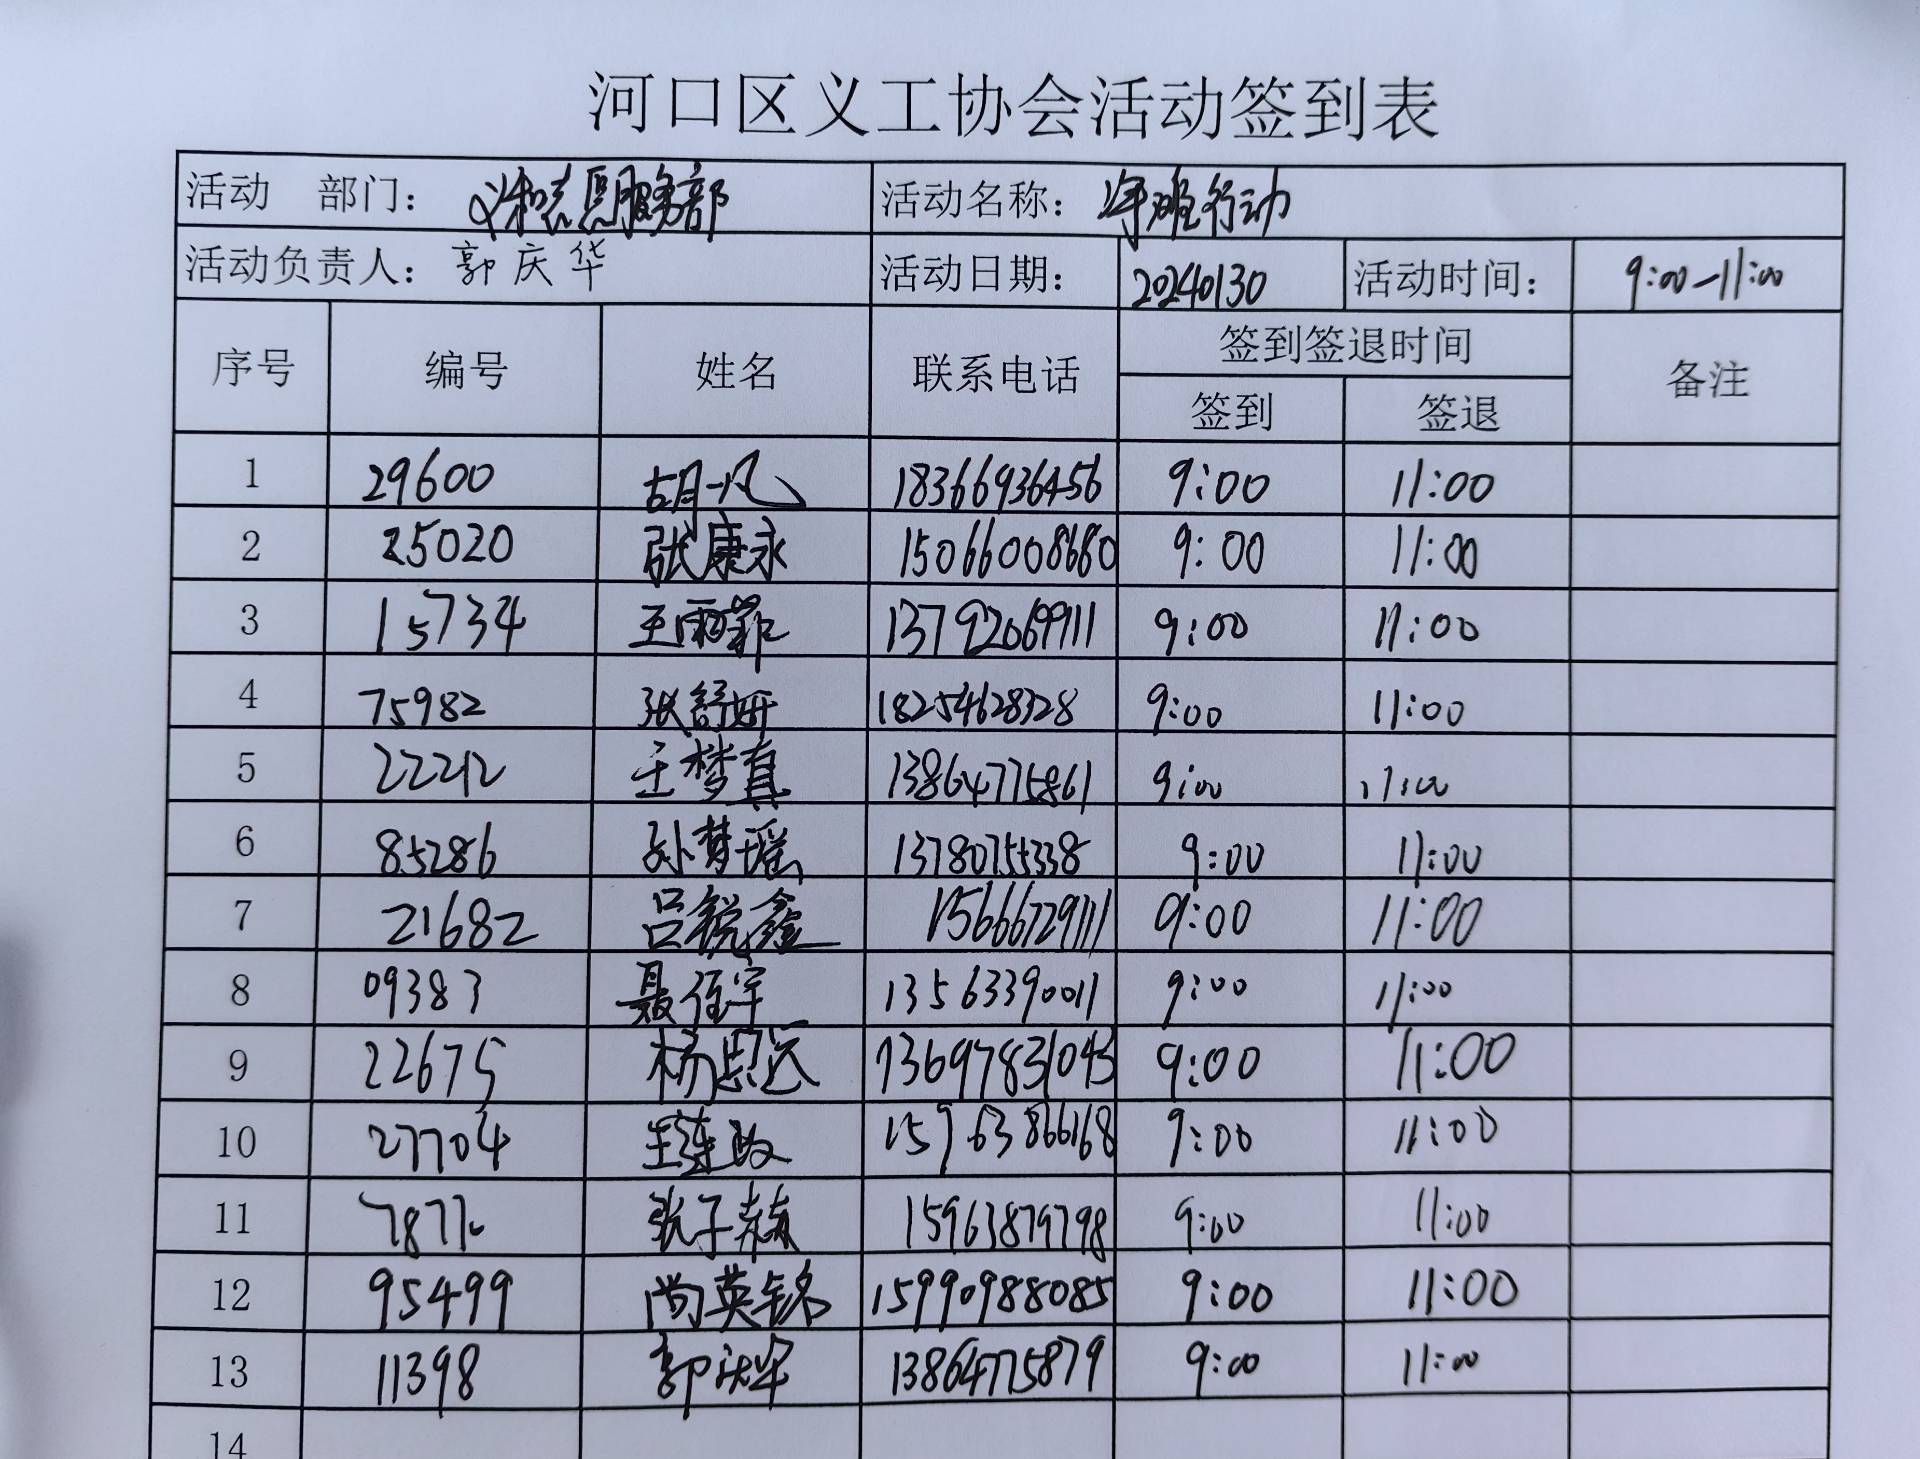 河口区义工协会活动签到表
活动 部门： 义和志愿服务部 活动名称： 净滩行动
活动负责人： 郭庆华 活动日期： 20240130 活动时间： 9:00-11:00
序号 编号 姓名 联系电话 签到签退时间 备注
签到 签退
1 29600 胡一凡 18366936456 9:00 11:00
2 25020 张康永 15066008680 9:00 11:00
3 15734 王雨菲 13792069911 9:00 11:00
4 75982 张舒妍 18254628328 9:00 11:00
5 22212 王梦真 13864775861 9:00 11:00
6 85286 孙梦瑶 13780755338 9:00 11:00
7 21682 吕锐鑫 15666729111 9:00 11:00
8 09383 聂任宇 13563390011 9:00 11:00
9 22675 杨思远 13697831043 9:00 11:00
10 27704 15963866168 9:00 11:00
11 张子赫 15963879798 9:00 11:00
12 95499 尚英铭 15990988085 9:00 11:00
13 11398 郭庆华 13864775879 9:00 11:00
14